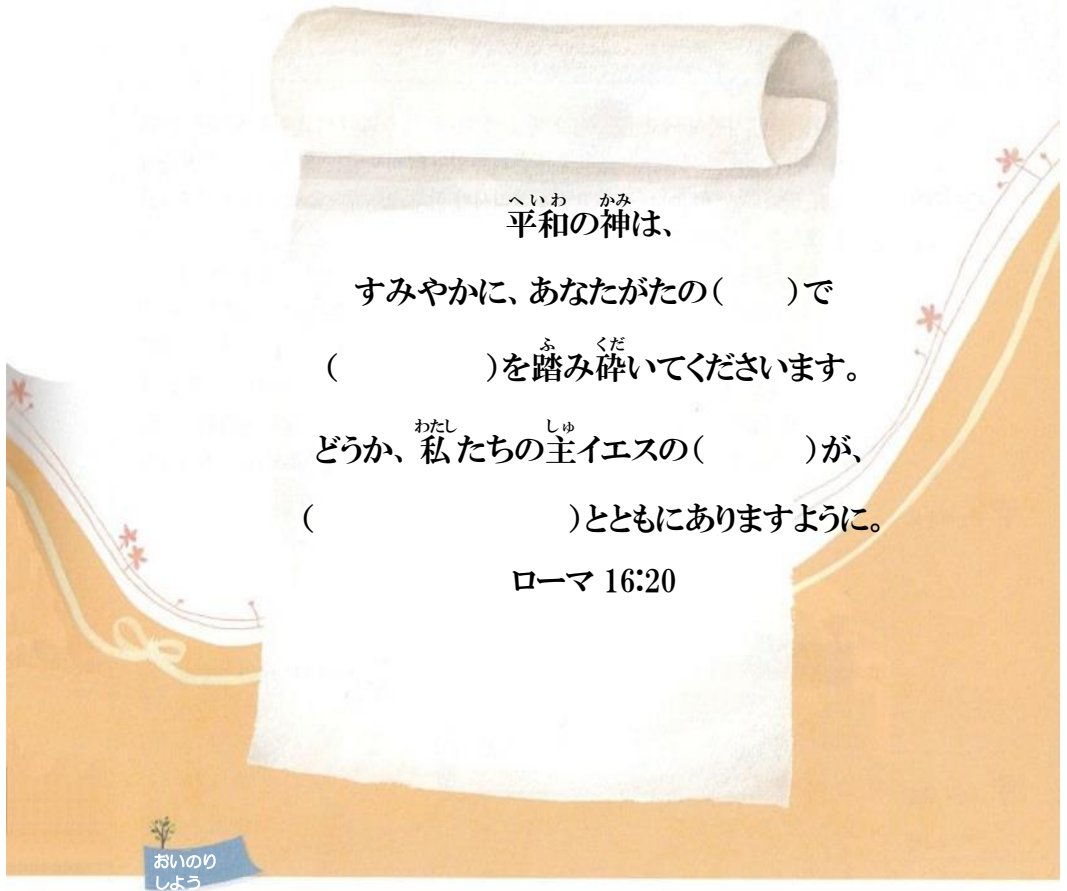 平和の神は、
すみやかに、あなたがたの(　　)で
(　　　　)を踏み砕いてくださいます。
どうか、私たちの主イエスの(　　　)が、
(　　　　　　　)とともにありますように。
ローマ 16:20
おいのり
しよう